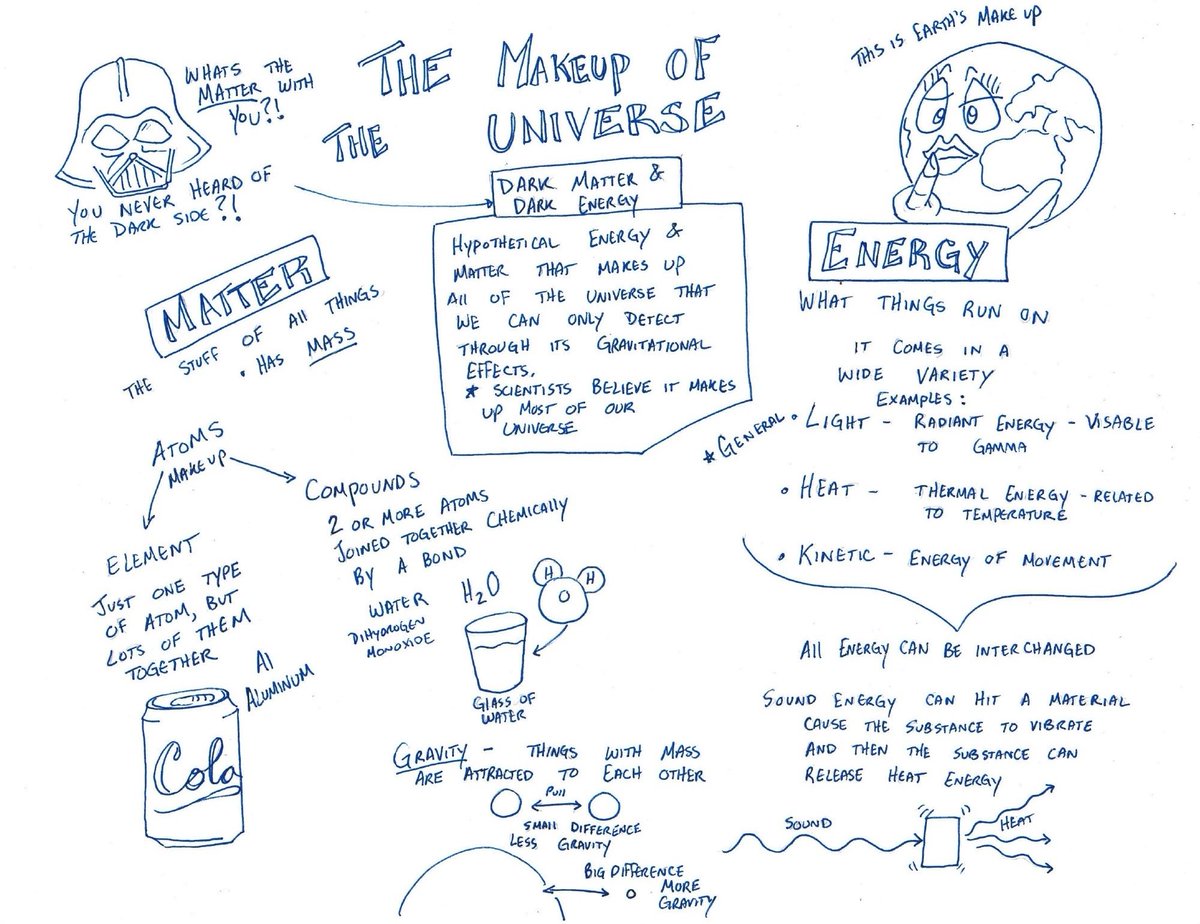 THE MAKEUP OF
THE UNIVERSE
WHATS THE
MATTER WITH
YOU?!
YOU NEVER HEARD OF
THE DARK SIDE?!
THIS IS EARTH'S MAKE UP
DARK MATTER &
DARK ENERGY
HYPOTHETICAL ENERGY &
MATTER THAT MAKES UP
All OF THE UNIVERSE THAT
WE CAN ONLY DETECT
THROUGH ITS GRAVITATIONAL
EFFECTS.
* SCIENTISTS BELIEVE IT MAKES
UP MOST OF OUR
UNIVERSE
MATTER
THE STUFF OF All THINGS
• HAS MASS
ATOMS
MAKEUP
ELEMENT
JUST ONE TYPE
OF ATOM, BUT
LOTS OF THEM
TOGETHER
Al
ALUMINUM
Cola
COMPOUNDS
2 OR MORE ATOMS
JOINED TOGETHER CHEMICALLY
BY A BOND
WATER H₂O
DIHYDROGEN
MONOXIDE
H H
O
GLASS OF
WATER
GRAVITY - THINGS WITH MASS
ARE ATTRACTED TO EACH OTHER
Pull
SMALL DIFFERENCE
LESS GRAVITY
BIG DIFFERENCE
MORE
GRAVITY
ENERGY
WHAT THINGS RUN ON
IT COMES IN A
WIDE VARIETY
EXAMPLES:
* GENERAL • LIGHT - RADIANT ENERGY - VISABLE
TO GAMMA
• HEAT - THERMAL ENERGY - RELATED
TO TEMPERATURE
• KINETIC - ENERGY OF MOVEMENT
All ENERGY CAN BE INTERCHANGED
SOUND ENERGY CAN HIT A MATERIAL
CAUSE THE SUBSTANCE TO VIBRATE
AND THEN THE SUBSTANCE CAN
RELEASE HEAT ENERGY
SOUND
HEAT